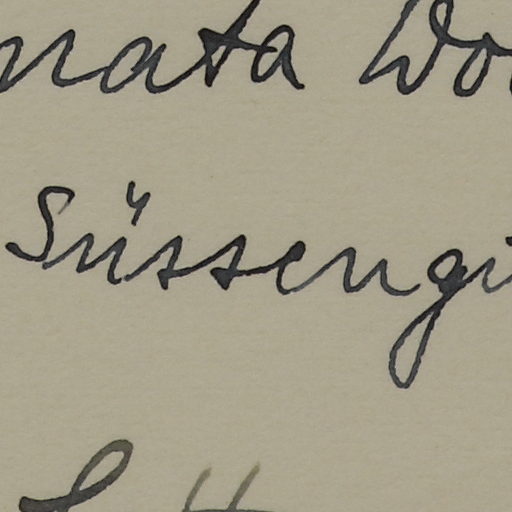 nata Wo
Süssengu